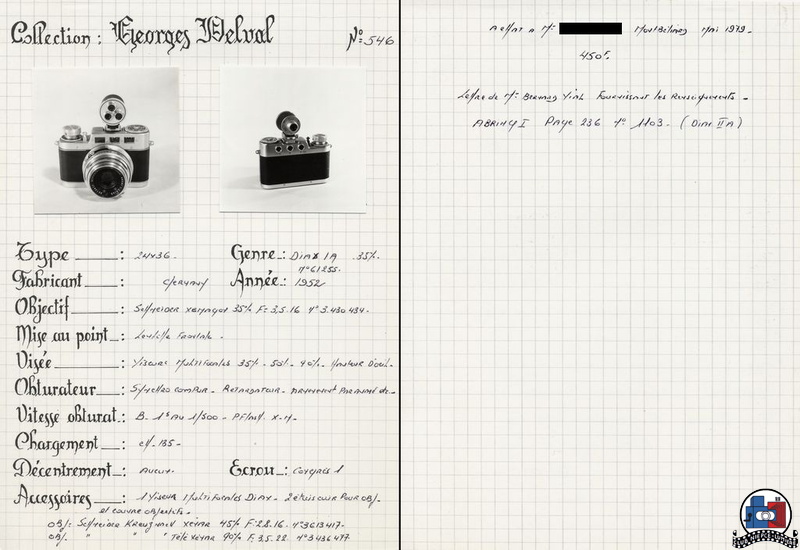 Collection : Georges Delval N° 546
Type : 24x36. Genre : Dimx IA 35%.
n° 61255.
Fabricant : Germany Année : 1952
Objectif : Schneider xenagon 35% F= 3,5.16 n° 3.430 434.
Mise au point : Lentille Frontale.
Visée : Viseurs Multifocales 35%. 50%. 90%. Hauteur D'oeil.
Obturateur : Synchro compur. Retardator. Armement Par
Vitesse obturat. : B. 1s Au 1/500 - PF/ X-M-
Chargement : ch. 135-
Décentrement : Aucun. Ecrou : Congrès 1
Accessoires : 1 Viseur Multifocales Dimx. 2 etuis cuir Pour obj.
et couvre objectifs.
obj: Schneider Kreuznach xenar 45% F: 2.8.16. n° 3613417-
obj. " " " Télé xenar 90% F. 3.5.22. n° 3436477
Achat a Mr Montbéliard Mai 1979-
450F.
Lettre de Mr Bernard Vial Fournissant les Renseignements -
ABRING I Page 236 n° 1103. (Dimx II A)